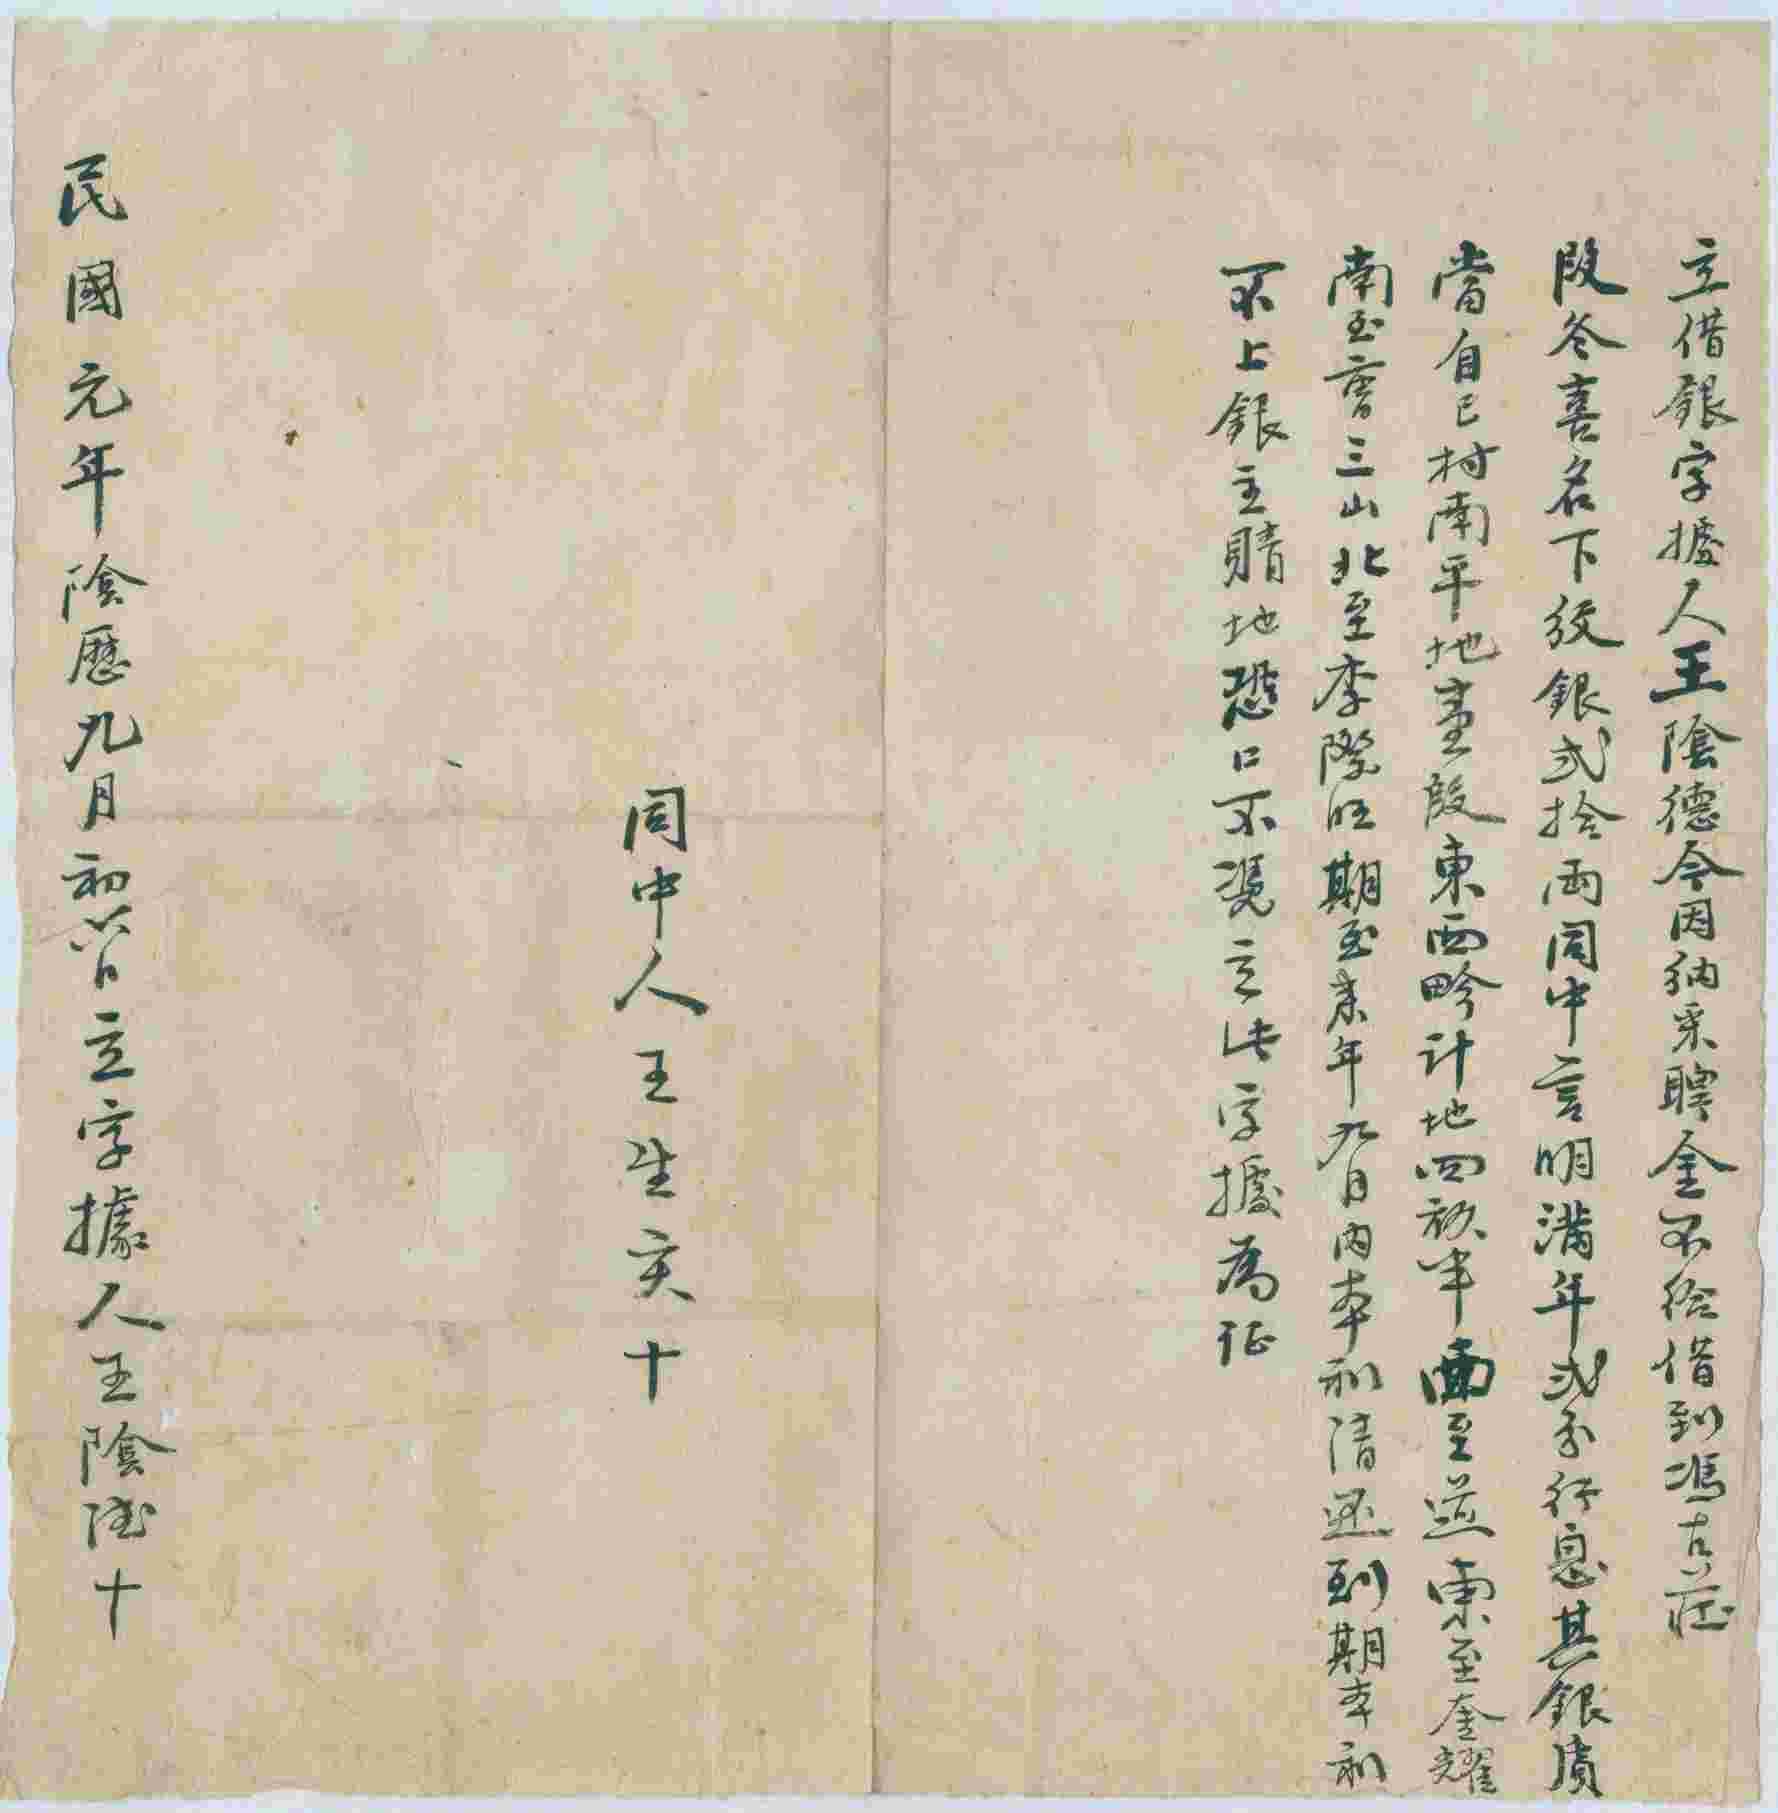 立借銀字據人王陰德今因納采聘金不給借到馮古莊
段冬喜名下紋銀弍拾両同中言明滿年弍分行息其銀質
當自己村南平地壹段東西畛計地四畝半西至道東至奎耀
南至曹三山北至李際旺期至来年九月内本利清还到期本利
不上銀主賭地恐口不凴立此字據為証
同中人王生 十
民國元年陰歷九月初 日立字據人王陰德十